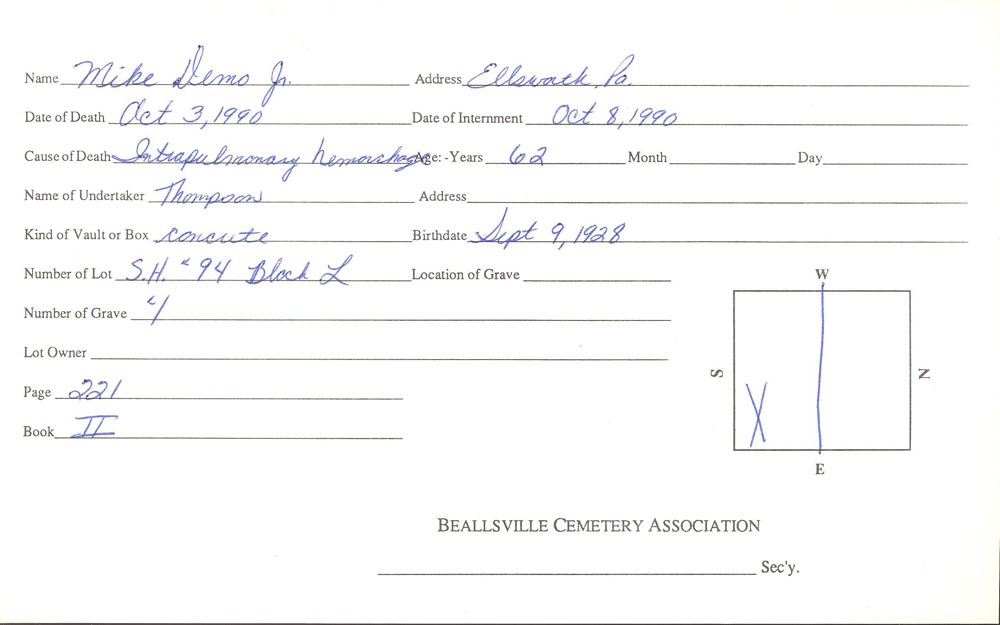 Name Mike Demo Jr. Address Ellswoth, Pa.
Date of Death Oct 3, 1990 Date of Internment Oct 8, 1990
Cause of Death Intrapulmonary hemorrhage Age: -Years 62 Month Day
Name of Undertaker Thompson Address
Kind of Vault or Box concrete Birthdate Sept 9, 1928
Number of Lot S.H. # 94 Block L Location of Grave
Number of Grave #1
Lot Owner
Page 221
Book II
W
S
N
X
E
BEALLSVILLE CEMETERY ASSOCIATION
Sec'y.